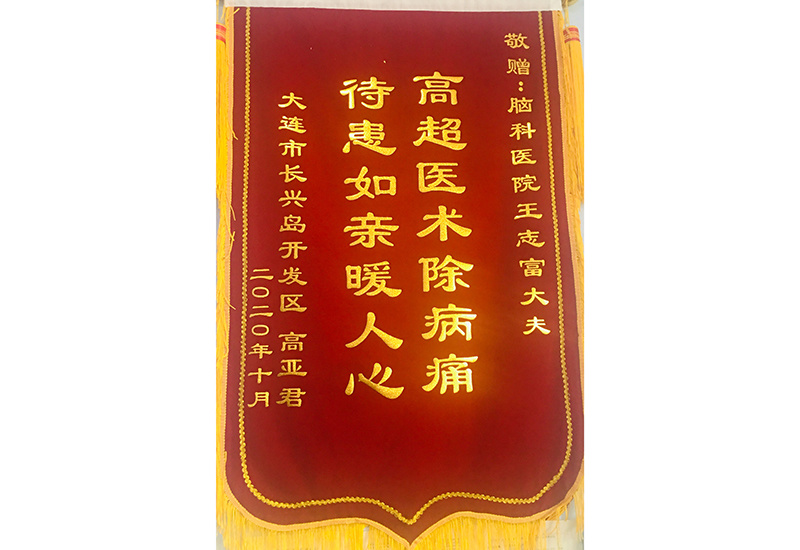 敬赠：脑科医院王志富大夫
高超医术除病痛
待患如亲暖人心
大连市长兴岛开发区 高亚君
二〇二〇年十月